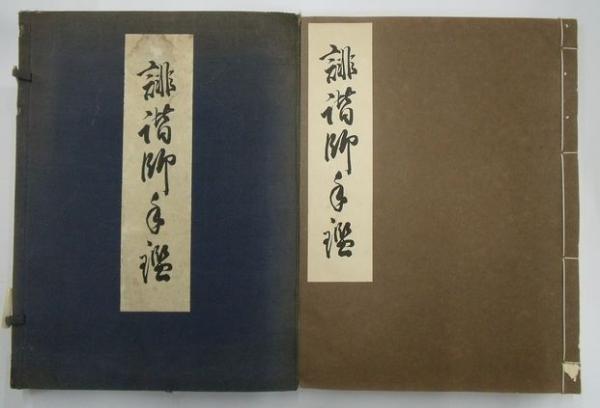 誹諧師手鑑
誹諧師手鑑